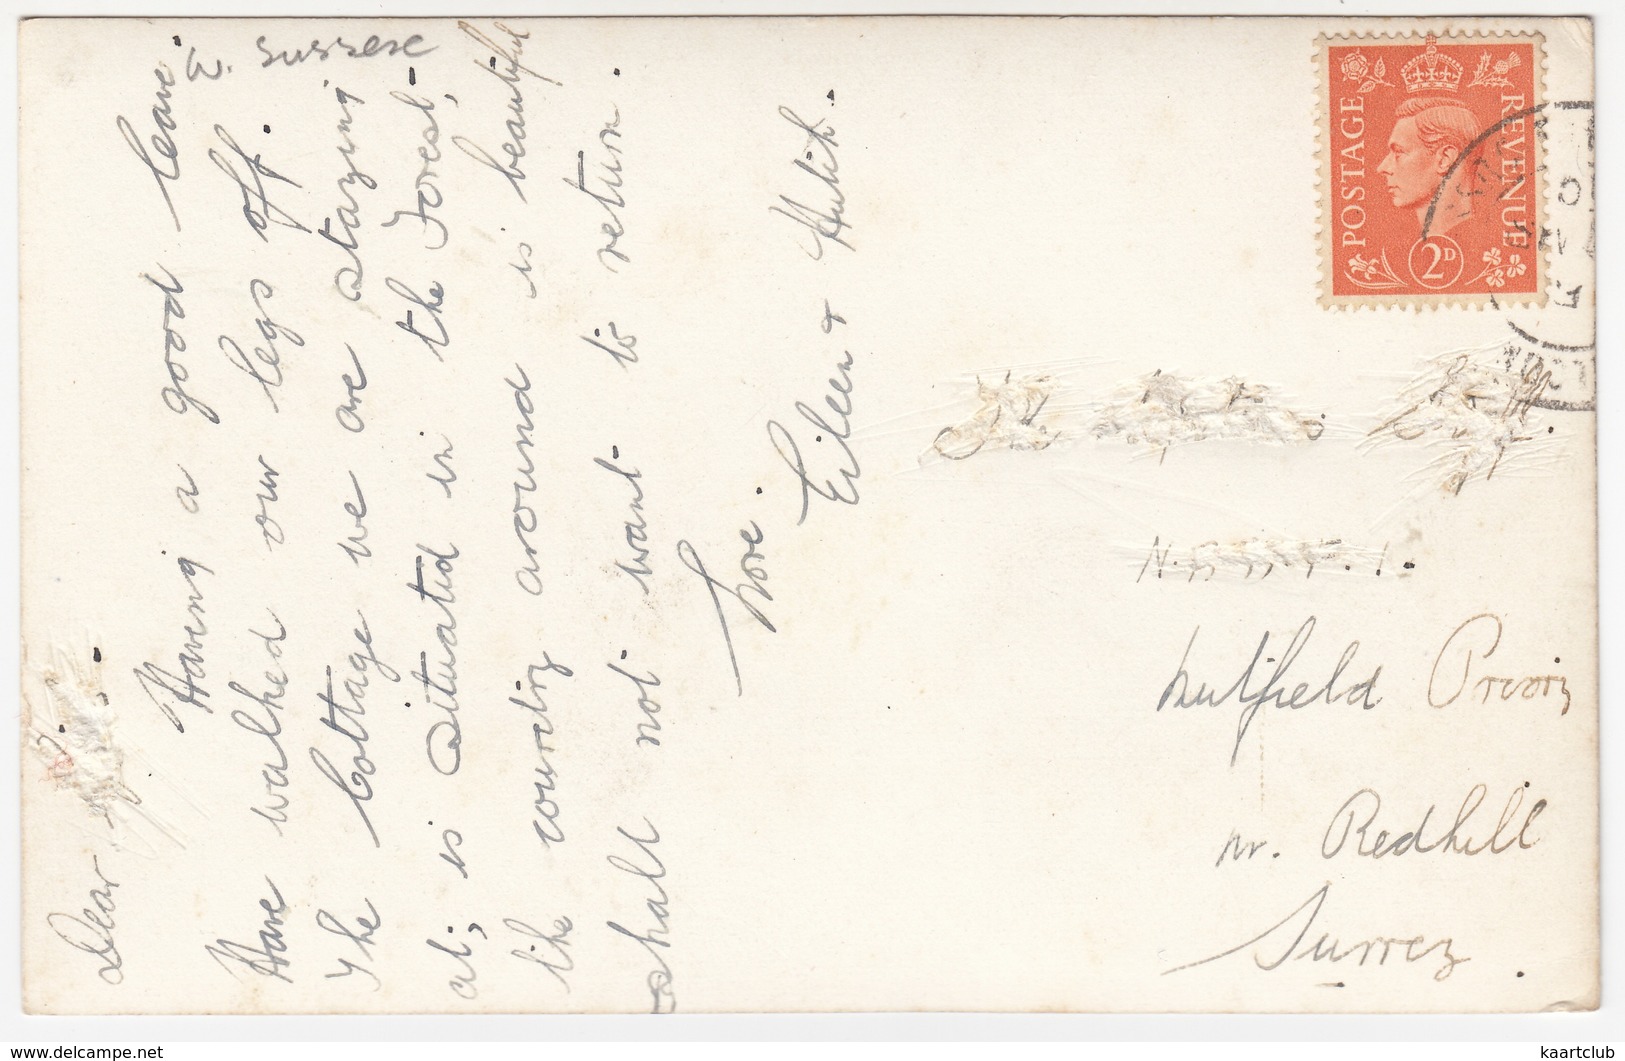 W. Sussex
Dear
Having a good leave
Have walked our legs off.
The Cottage we are staying
at, is situated in the Forest,
the country around is beautiful
shall not want to return.
Love.
Eileen & Hutch.
POSTAGE
REVENUE
2D
Nutfield Priory
nr. Redhill
Surrey.
www.delcampe.net
kaartclub